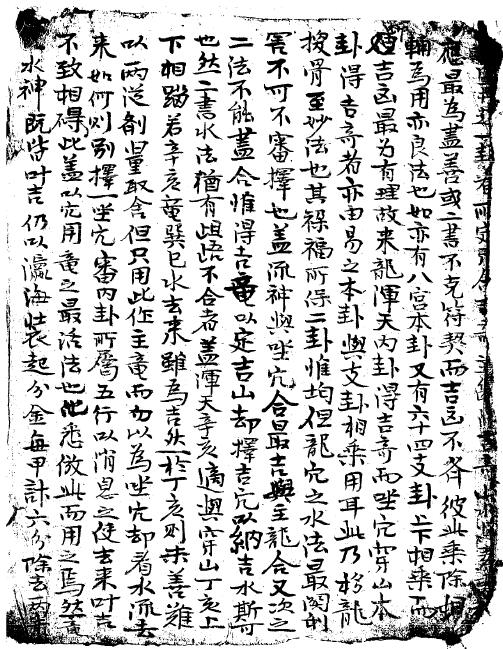 應最為盡善或二書不克符契而吉凶不齊彼此乘除相
輔為用亦良法也如亦有八宮本卦又有六十四支卦上下相乘而
吉凶最為有理故來龍渾天內卦得吉奇而坐穴穿山本
卦得吉奇者亦由易之本卦與支卦相乘用耳此乃移龍
換骨至妙法也其禄福所係二卦惟均但龍穴之水法最関利
害不可不審擇也蓋流神與坐穴合最吉與主龍合又次之
二法不能盡合惟得吉竜以定吉山却擇吉穴以納吉水斯
也然二書水法猶有齟齬不合者蓋渾天辛亥適與穿山丁亥上
下相蹈若辛亥竜巽巳水去來雖為吉然於丁亥則未善難
以兩從剖量取舍但只用此作主竜而勿以為坐穴却看水流去
來如何則別擇一坐穴審內卦所屬五行以消息之使去來叶吉
不致相碍此蓋以穴用竜之最活法也他悉倣此而用之焉然
水神既皆叶吉仍以瀛海裝起分金每甲計六分除去丙